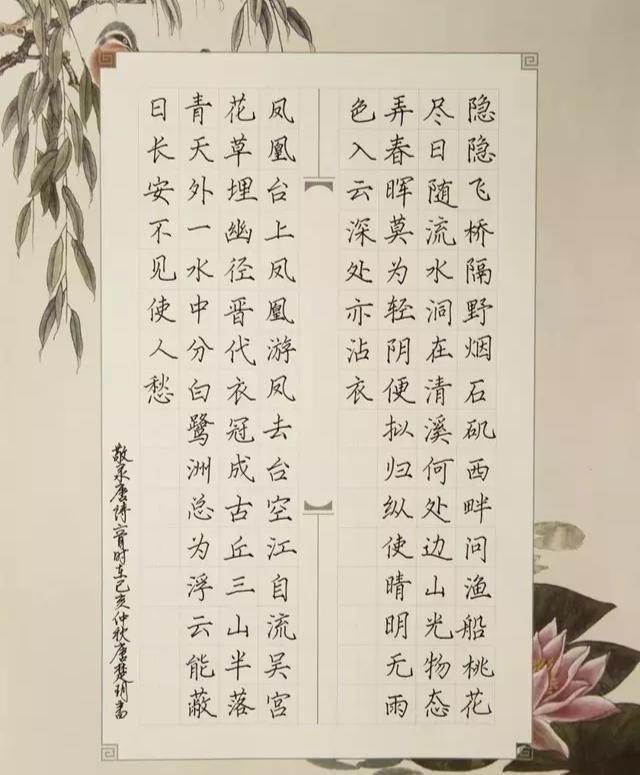 隐隐飞桥隔野烟石矶西畔问渔船桃花
尽日随流水洞在清溪何处边山光物态
弄春晖莫为轻阴便拟归纵使晴明无雨
色入云深处亦沾衣
凤凰台上凤凰游凤去台空江自流吴宫
花草埋幽径晋代衣冠成古丘三山半落
青天外一水中分白鹭洲总为浮云能蔽
日长安不见使人愁
敬录唐诗三首时在己亥仲秋唐楚玥书